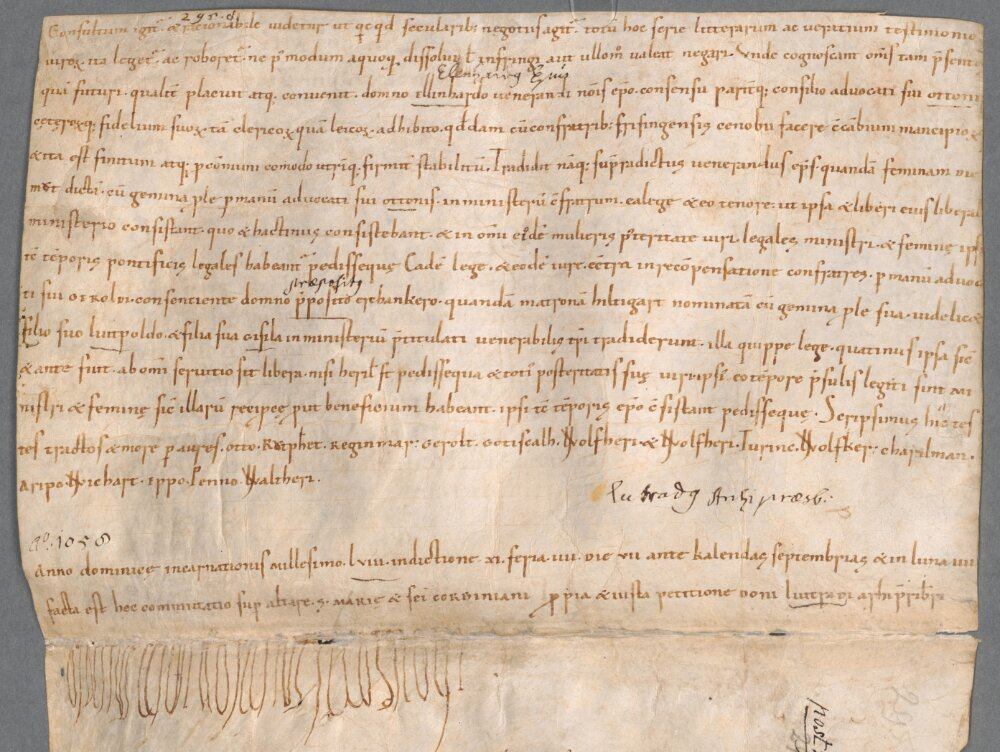 295. d.
Consultum igit̄ & racionabile videtur ut qcqd secularib; negotiis agit̄ totū hoc serie litterarum ac veratium testimonio
atq. roboret̄ ne p̄ modum aquoq. dissolvi ł infringi aut ullom̄ valeat negari. Unde cognoscant om̄s tam p̄sent
Ellenhardg Epus
quā futuri. qualit̄ placuit atq. convenit. domno ellinhardo venerandi nois ep̄o. consensu parit̄q; consilio advocati sui ottonis
ceterorq; fidelium suoꝝ tā clericoꝝ quā leicoꝝ adhibito. qd̄dam cū confratrib; frisingensis cenobii facere ēcābium mancipioꝝ
& ita est finitum atq. p comūni comodo utriq. firmit̄ stabilitū. Tradidit nāq; sup̄radictus venerandus ep̄s quandā feminam
dictā. cū gemina ple p manū advocati sui ottonis. in ministeriū c̄fratrum. ea lege & eo tenore. ut ipsa & liberi eius liberali
ministerio consistant. quo & hactinus consistebant. & in om̄i eidē mulieris p̄teritate viri legales ministri. & feminę ipsi
tc̄ tēporis pontificis legales habeant̄ pedisseque. Eadē lege. & eodē iure. ec̄tra in recōpensatione confratres. p manū advoca
præpositg
ti sui otkoldi. consentiente domno p̄posito erchankero. quandā matronā hiltigart nominatā cū gemina ple sua. videlic&
filio suo luitpoldo. & filia sua gisila in ministeriū p̄titulati venerabilis p̄ri tradiderunt. illa quippe lege. quatinus ipsa sic̄
& ante fuit. ab om̄i servitio sit libera. nisi herił st̄ pedissequa & toti posteritatis suę viri ipsi eo tēpore p̄sulis legitī sint mi
nistri & feminę sic̄ illarū recipeę put beneficium habeant. ipsi tc̄ tēporis ep̄o c̄sistant pedisseque. Scripsimus hic tes
tes tractos & more p aures. otto. Raphet. Reginmar. Gerolt. Gotiscalh. Wolfheri. & Wolfheri. Turinc. Wolfker. charilman.
Aripo. Wichart. Eppo. Penno. Waltheri.
Lutradg Archipræsb.
Aō. 1058
Anno dominicę incarnationis Millesimo. LVIII. indictione. XI. feria. VII. die VII ante kalendas septembrias & in luna. VII
facta est hoc commutatio sup altare. s. MARIE & sc̄i CORBINIANI p̄pria & iusta petitione doni luttradi archip̄rib̄ri
post